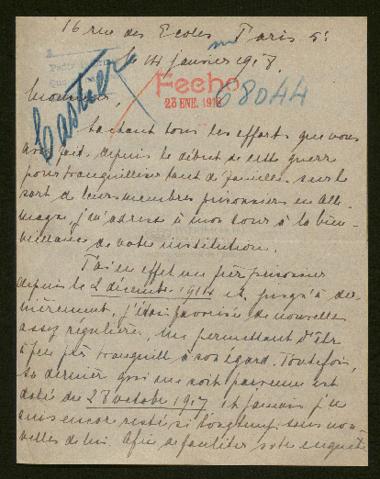 16 rue des Ecoles Paris 5e
le 14 janvier 1918.
Fecho
23 ENE. 1918
68044
Castier
Monsieur,
Sachant tous les efforts que vous
avez fait, depuis le début de cette guerre
pour tranquilliser tant de familles, sur le
sort de leurs membres prisonniers en Alle
magne, j'm'adresse à mon tour à la bien-
veillance de votre institution.
J'ai en effet un frère prisonnier
depuis le 2 décembre 1914 et jusqu'à der-
nièrement, j'étais favorisée de nouvelles
assez régulières, me permettant d'être
à peu près tranquille à son égard. Toutefois,
sa dernière qui me soit parvenue est
datée du 28 octobre 1917 et jamais je
suis encor resté si longtemps sans nou-
velles de lui. Afin de faciliter votre enquête